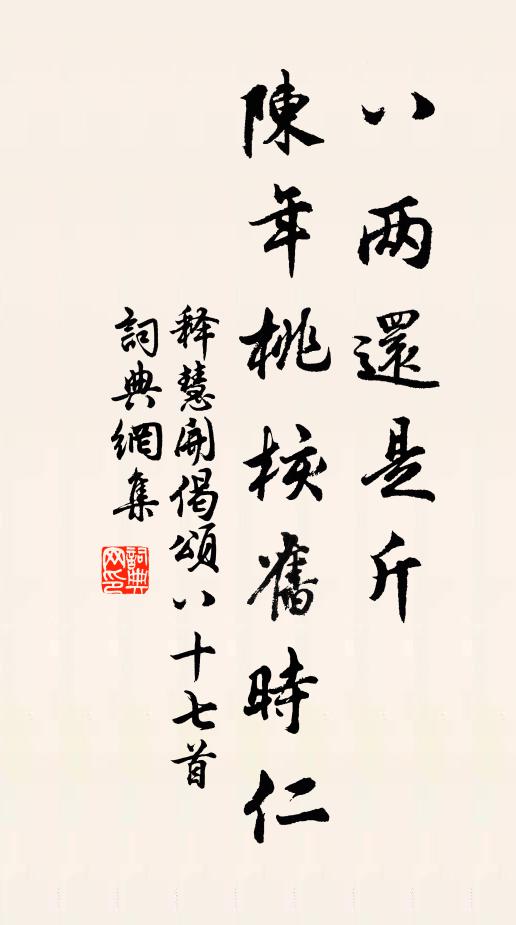 八两還是斤
陳年桃核舊時仁
释慧開偈頌八十七首
詞典網集
詞典网印